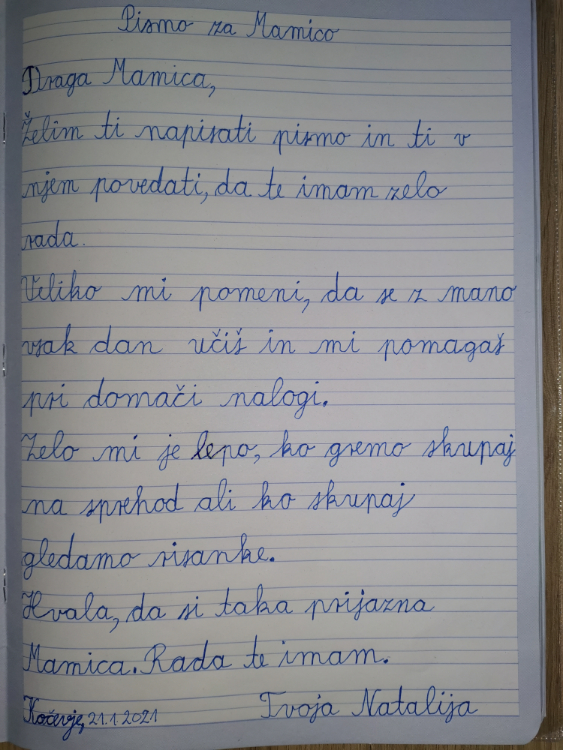 Pismo za Mamico
Draga Mamica,
Želim ti napisati pismo in ti v
njem povedati, da te imam zelo
rada.
Veliko mi pomeni, da se z mano
vsak dan učiš in mi pomagaš
pri domači nalogi.
Zelo mi je lepo, ko gremo skupaj
na sprehod ali ko skupaj
gledamo risanke.
Hvala, da si taka prijazna
Mamica. Rada te imam.
Kočevje, 21.1.2021 Tvoja Natalija